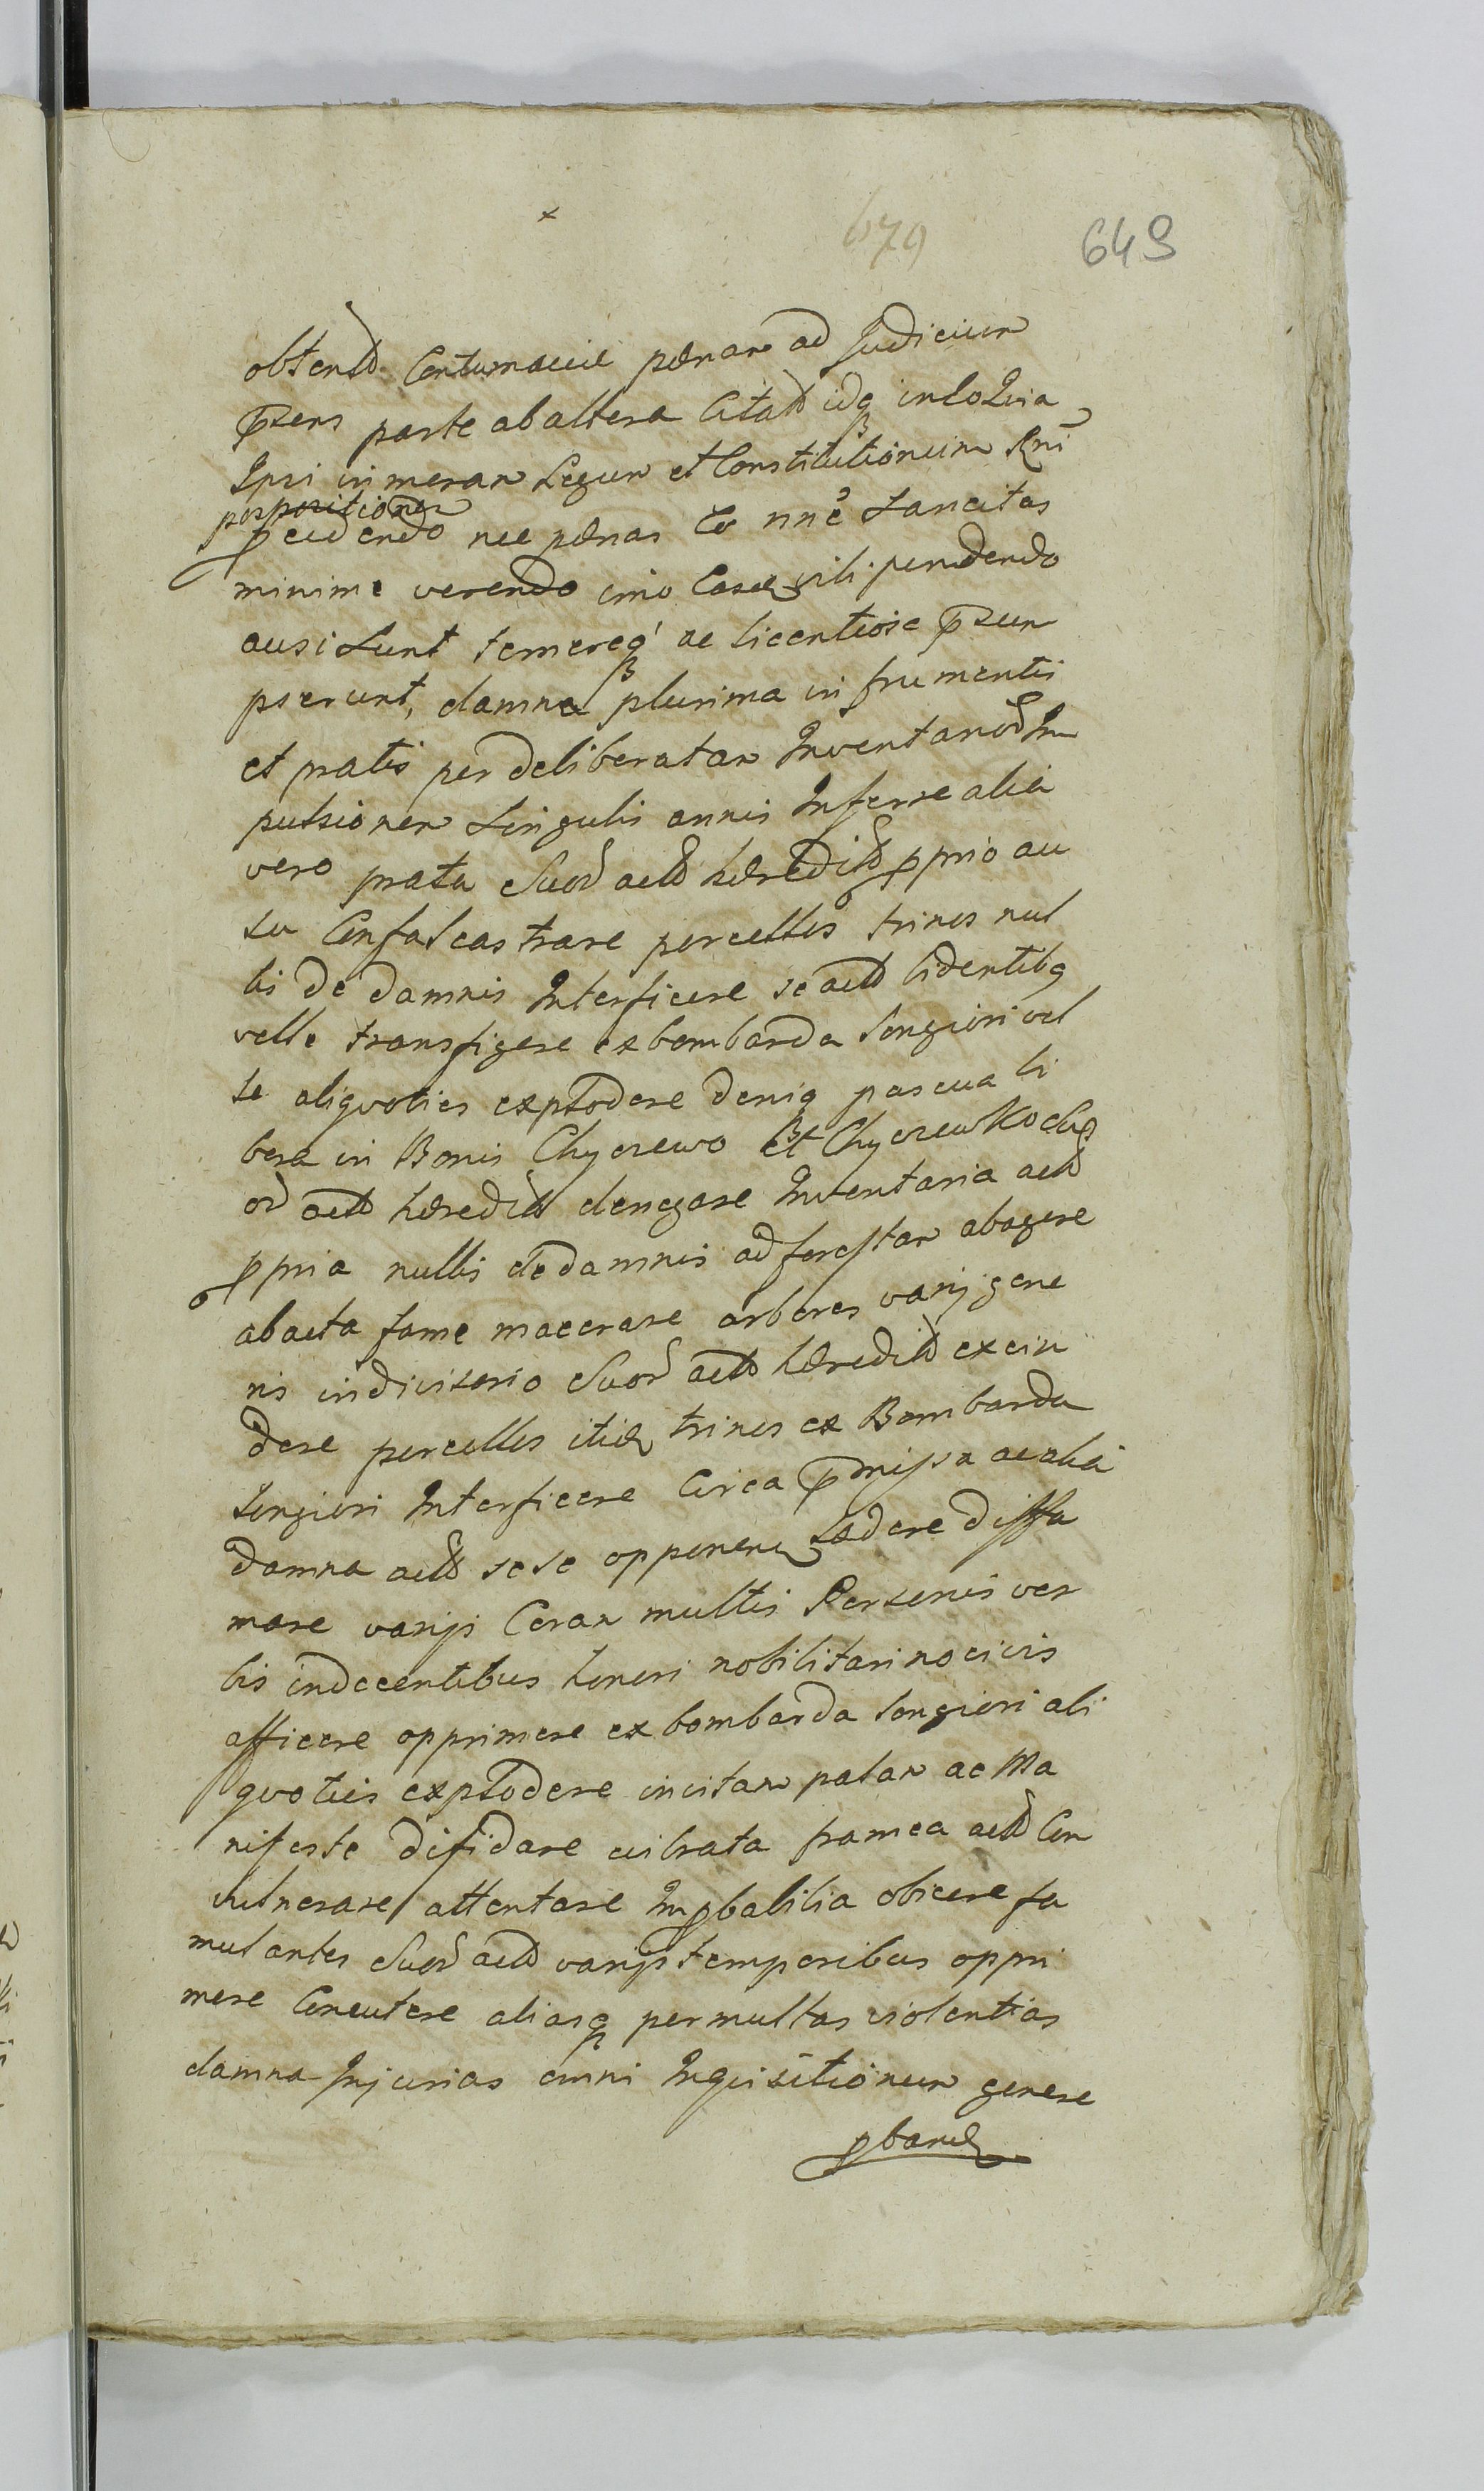 679
649
obtend Contumaciæ pænam ad Judicium
p̄sens parte ab altera Citatt idq in eo Quia
Ipsi in meram Legum et Constitutionum Rni
pospositionem
p cudendo nec pænas eo nne sancitas
minime verendo imo Easdem vili pendendo
ausi sunt temereq ac licentiose p̄sum
pserunt, damna plurima in frumentis
et pratis per deliberatam Inventariord Im
pulsionem singulis annis Inferre alia
vero prata Suord actt hæreditt pprio au
su Confalcastrare porcellos trinos nul
lis de damnis Interficere se actt bidentibq
velle transfigere ex bombarda longiori vel
le aliquoties explodere deniq pascua li
bera in Bonis Chyczewo et Chyczewko dict
ord actt hæreditt denegare Inventaria actt
ppria nullis de damnis ad forestam abagere
abacta fame macerare arbores varij gene
ris indivisorio Suord actt hæreditt excin
dere porcellos itidem trinos ex Bombarda
longiori Interficere Circa p̄missa ac alia
damna actt sese opponen lædere diffa
mare varijs Coram multis Personis ver
bis indecentibus honori nobilitari nocivis
afficere opprimere ex bombarda longiori ali
quoties explodere in vitam palam ac Ma
nifeste difidare vibrata framea actt Con
vulnerare attentare Impbabilia obicere fa
mulantes Suord actt varijs temporibus oppri
mere Concutere aliasq permultas violentias
damna Injurias omni Inquisitionum genere
pband